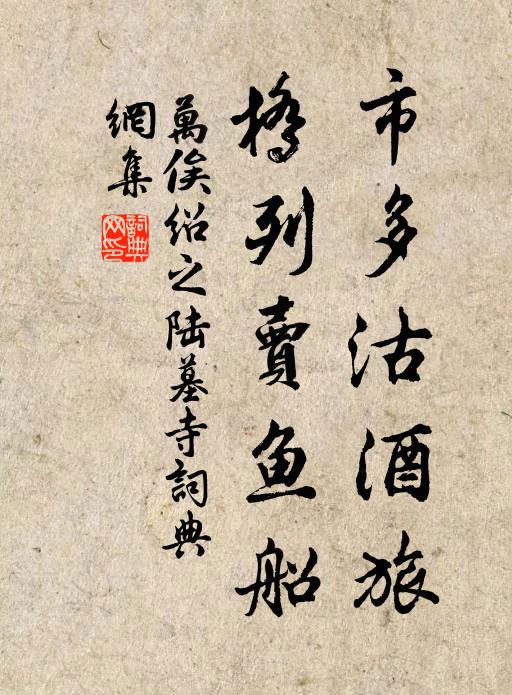 市多沽酒旅
橋列賣鱼船
萬俟绍之陆墓寺詞典
網集
詞典
网印